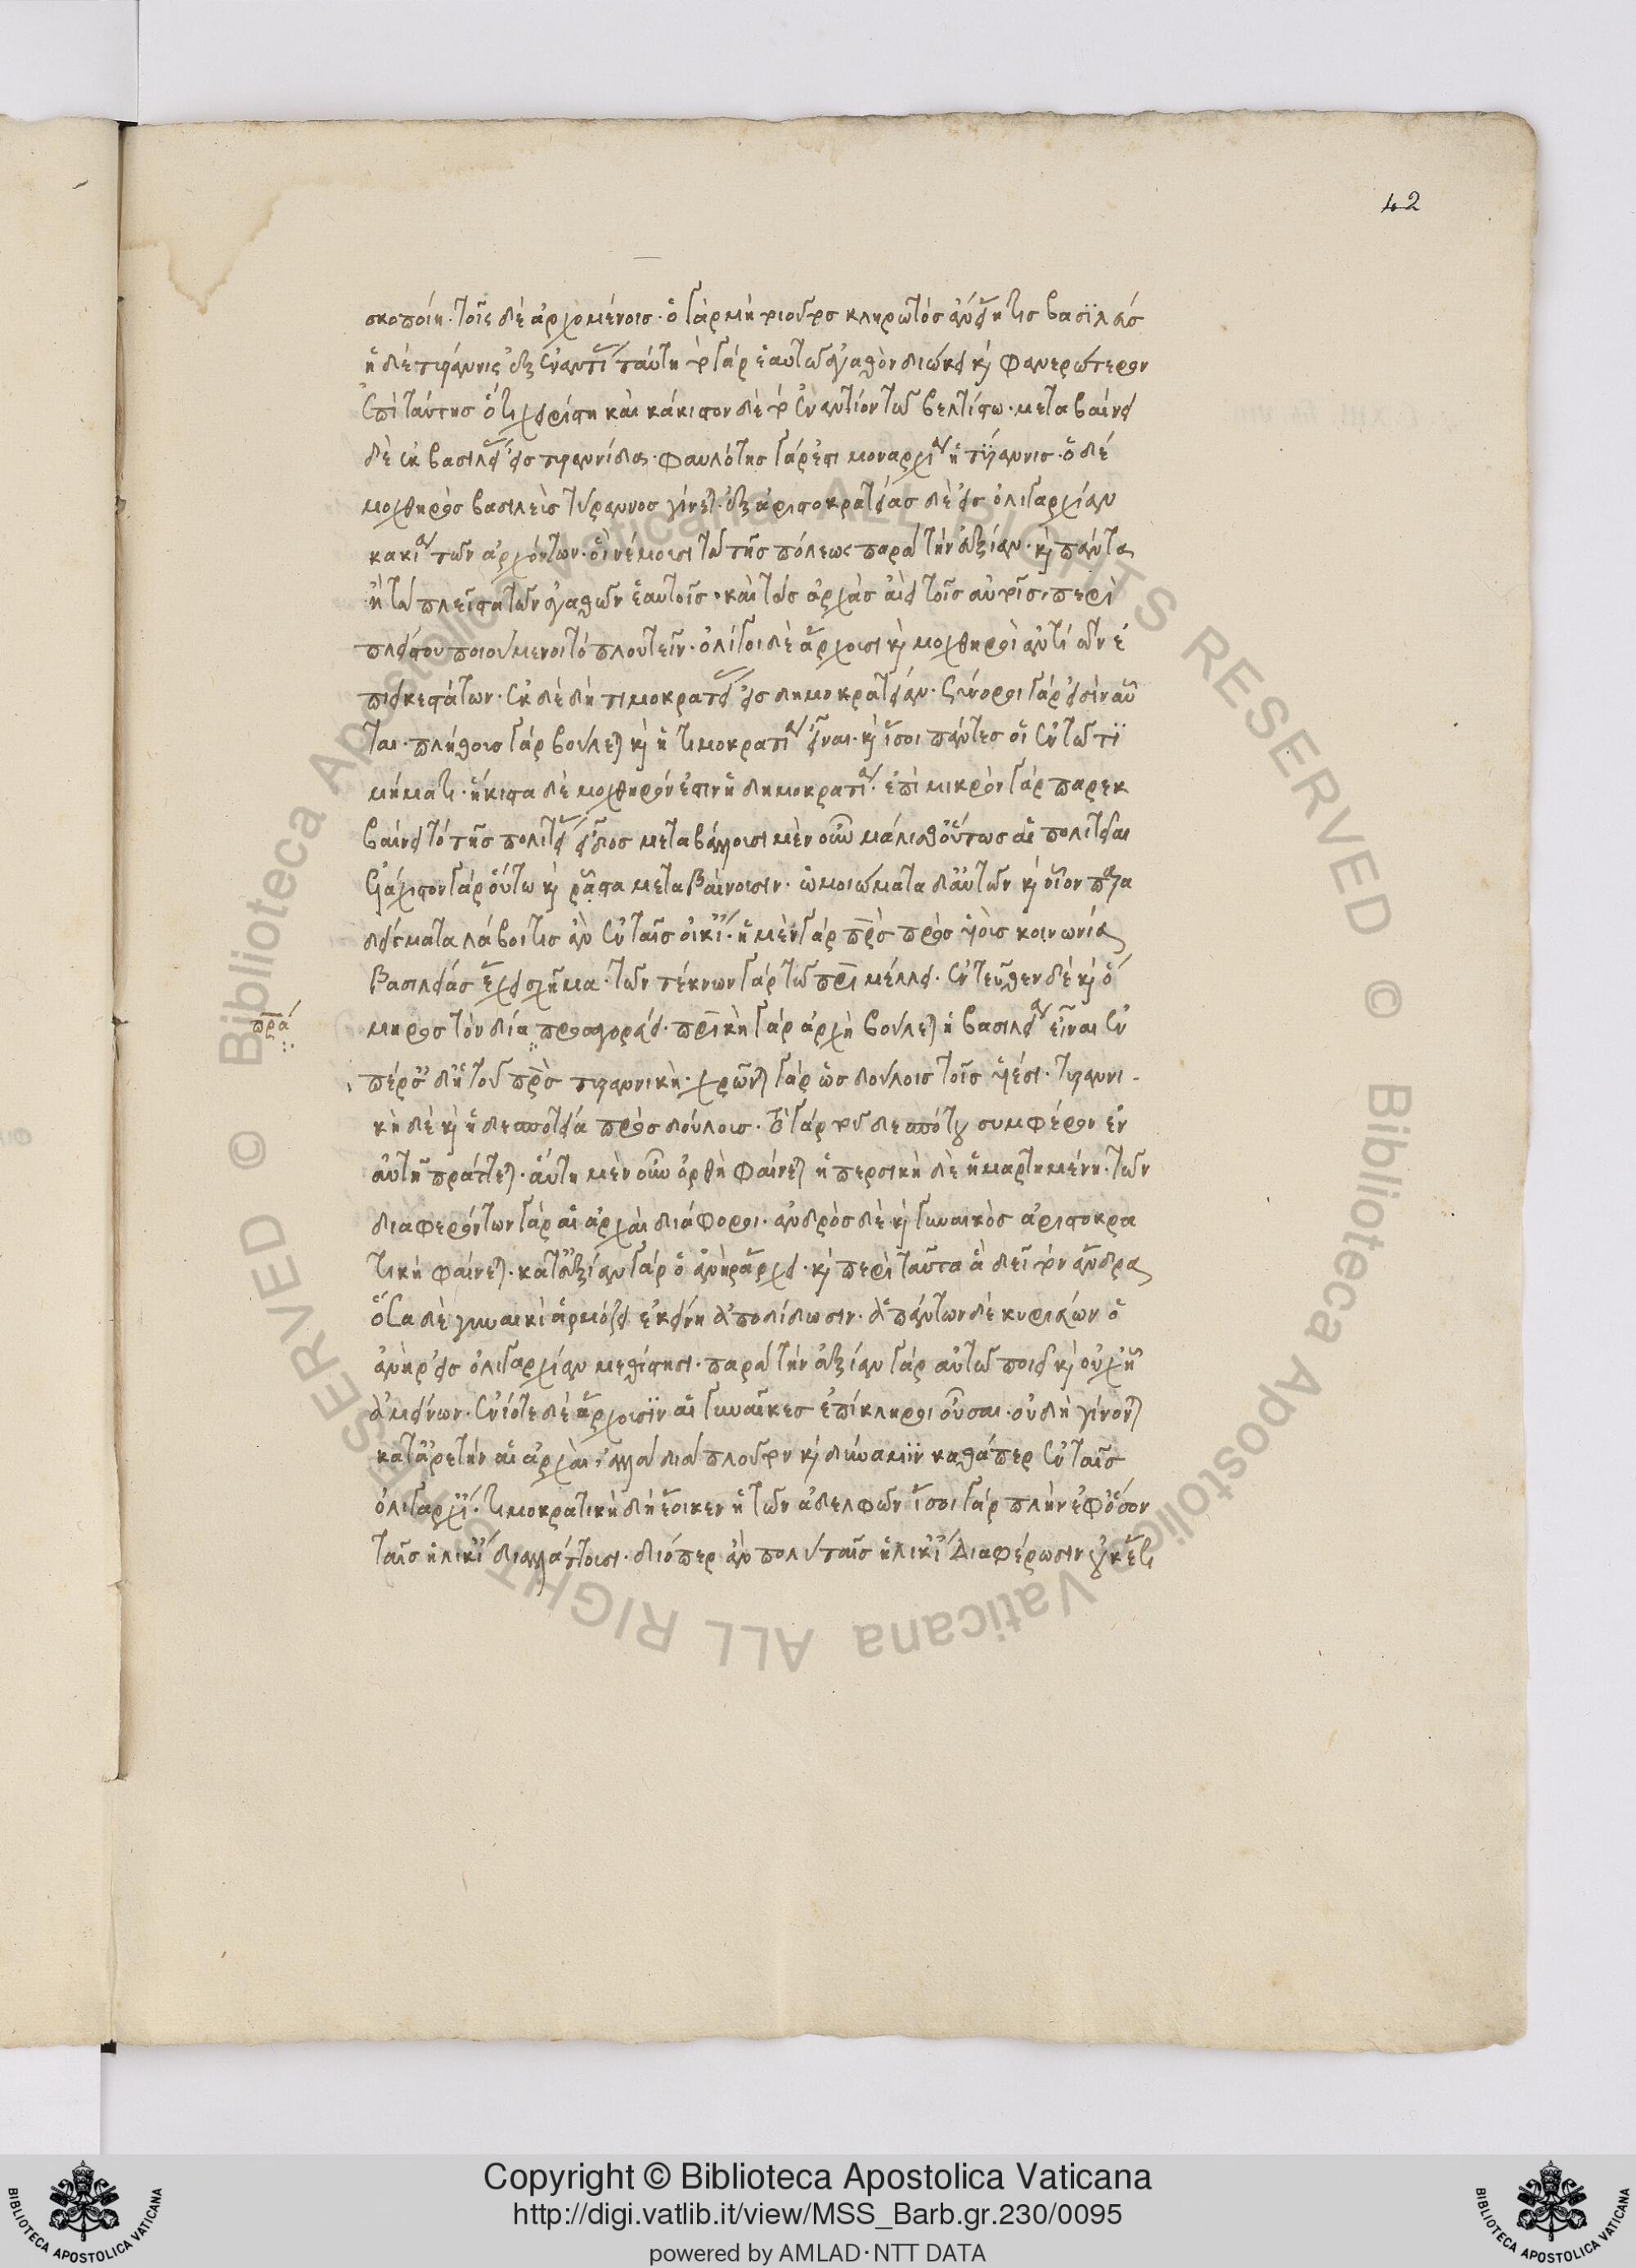 42
σκοποίη· τοῖς δὲ ἀρχομένοις· ὁ γὰρ μὴ τοιοῦτος κληρωτὸς ἄν εἴη τις βασιλεύς
ἡ δὲ τυραννὶς ἐξ ἐναντίας ταύτη τὸ γὰρ ἑαυτῷ ἀγαθὸν διώκει καὶ φανερώτερον
ἐπὶ ταύτης ὅτι χειρίστη καὶ κάκιστον δὲ τὸ ἐναντίον τῷ βελτίστῳ· μεταβαίνει
δὲ ἐκ βασιλείας εἰς τυραννίδα· φαυλότης γάρ ἐστι μοναρχίας ἡ τυραννίς· ὁ δὲ
μοχθηρὸς βασιλεὺς τύραννος γίνεται· ἐξ ἀριστοκρατείας δὲ εἰς ὀλιγαρχίαν
κακίᾳ τῶν ἀρχόντων· οἳ νέμουσι τὰ τῆς πόλεως παρὰ τὴν ἀξίαν· καὶ πάντα
ἢ τὰ πλεῖστα τῶν ἀγαθῶν ἑαυτοῖς· καὶ τὰς ἀρχὰς ἀεὶ τοῖς αὐτοῖς, περὶ
πλείστου ποιούμενοι τὸ πλουτεῖν· ὀλίγοι δὲ ἄρχουσι καὶ μοχθηροὶ ἀντὶ τῶν ἐ
πιεικεστάτων· ἐκ δὲ δὴ τιμοκρατείας εἰς δημοκρατείαν· σύνοροι γάρ εἰσιν αὗ
ται· πλήθους γὰρ βούλεται καὶ ἡ τιμοκρατία εἶναι· καὶ ἴσοι πάντες οἱ ἐν τῷ τι
μήματι· ἥκιστα δὲ μοχθηρόν ἐστιν ἡ δημοκρατία· ἐπὶ μικρὸν γὰρ παρεκ
βαίνει τὸ τῆς πολιτείας εἶδος μεταβάλλουσι μὲν οὖν μάλισθ' οὕτως αἱ πολιτεῖαι
ἐλάχιστον γὰρ οὕτω καὶ ῥᾷστα μεταβαίνουσιν· ὁμοιώματα δ' αὐτῶν καὶ οἷον παρα
δείγματα λάβοι τις ἂν ἐν ταῖς οἰκίαις· ἡ μὲν γὰρ πρὸς πρὸς υἱοῖς κοινωνία
βασιλείας ἔχει σχῆμα· τῶν τέκνων γὰρ τῷ πρὶ μέλλει· ἐντεῦθεν δὲ καὶ ὁ
μηρος τὸν δία προαγοράει· πρικὴ γὰρ ἀρχὴ βούλεται ἡ βασιλεία εἶναι ἐν
πρα
πέρσαις δ' ἡ τοῦ πρὸς τυραννική· χρῶνται γὰρ ὡς δούλοις τοῖς υἱέσι· τυραννι-
κὴ δὲ καὶ ἡ δεσποτεία πρὸς δούλοις· τὸ γὰρ τοῦ δεσπότου συμφέρον ἐν
αὐτῇ πράττεται· αὕτη μὲν οὖν ὀρθὴ φαίνεται ἡ περσικὴ δὲ ἡμαρτημένη· τῶν
διαφερόντων γὰρ αἱ ἀρχαὶ διάφοροι· ἀνδρὸς δὲ καὶ γυναικὸς ἀριστοκρα
τικὴ φαίνεται· κατ' ἀξίαν γὰρ ὁ ἀνὴρ ἄρχει· καὶ περὶ ταῦτα ἃ δεῖ τὸν ἄνδρα
ὅσα δὲ γυναικὶ ἁρμόζει ἐκείνη ἀποδίδωσιν· ἁπάντων δὲ κυριεύων ὁ
ἀνὴρ εἰς ὀλιγαρχίαν μεθίστησι· παρὰ τὴν ἀξίαν γὰρ αὐτῷ ποιεῖ καὶ οὐχ ᾗ
ἀμείνων· ἐνίοτε δὲ ἄρχουσιν αἱ γυναῖκες ἐπίκληροι οὖσαι· οὐ δὴ γίνονται
κατ' ἀρετὴν αἱ ἀρχαί· ἀλλὰ διὰ πλοῦτον καὶ δύναμιν καθάπερ ἐν ταῖς
ὀλιγαρχίαις· τιμοκρατικὴ δὴ ἔοικεν ἡ τῶν ἀδελφῶν ἴσοι γὰρ πλὴν ἐφ' ὅσον
ταῖς ἡλικίαις διαλλάττουσι· διόπερ ἂν πολὺ ταῖς ἡλικίαις διαφέρωσιν οὐκέτι
Copyright © Biblioteca Apostolica Vaticana
http://digi.vatlib.it/view/MSS_Barb.gr.230/0095
powered by AMLAD·NTT DATA
BIBLIOTECA APOSTOLICA VATICANA
BIBLIOTECA APOSTOLICA VATICANA
© Biblioteca Apostolica Vaticana ALL RIGHTS RESERVED © Biblioteca Apostolica Vaticana ALL RIGHTS RESERVED